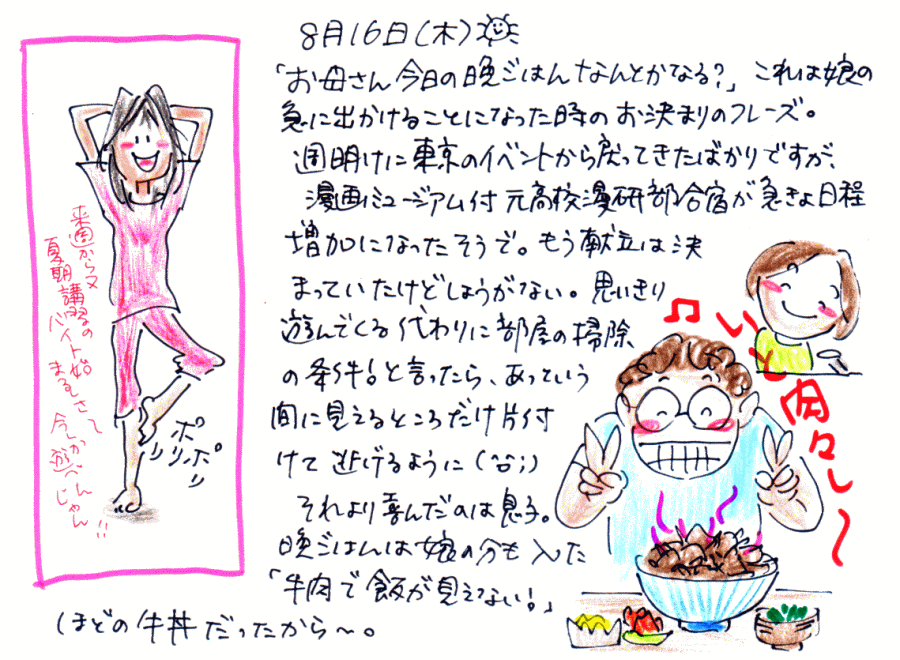 8月16日(木)
「お母さん今日の晩ごはんなんとかなる?」これは娘の
急に出かけることになった時のお決まりのフレーズ。
週明けに東京のイベントから戻ってきたばかりですが、
漫画ミュージアム付元高校漫研部合宿が急きょ日程
増加になったそうで。もう献立は決
まっていたけどしょうがない。思いきり
遊んでくる代わりに部屋の掃除
の条件!と言ったら、あっという
間に見えるところだけ片付
けて逃げるように(^^;)
それより喜んだのは息子。
晩ごはんは娘の分も入った
「牛肉で飯が見えない!」
ほどの牛丼だったから〜。
来週から又
夏期講習の
バイト始
まるしさ〜
今しか
遊べん
じゃん!!
ポリポリ
♫い〜と
肉々し〜